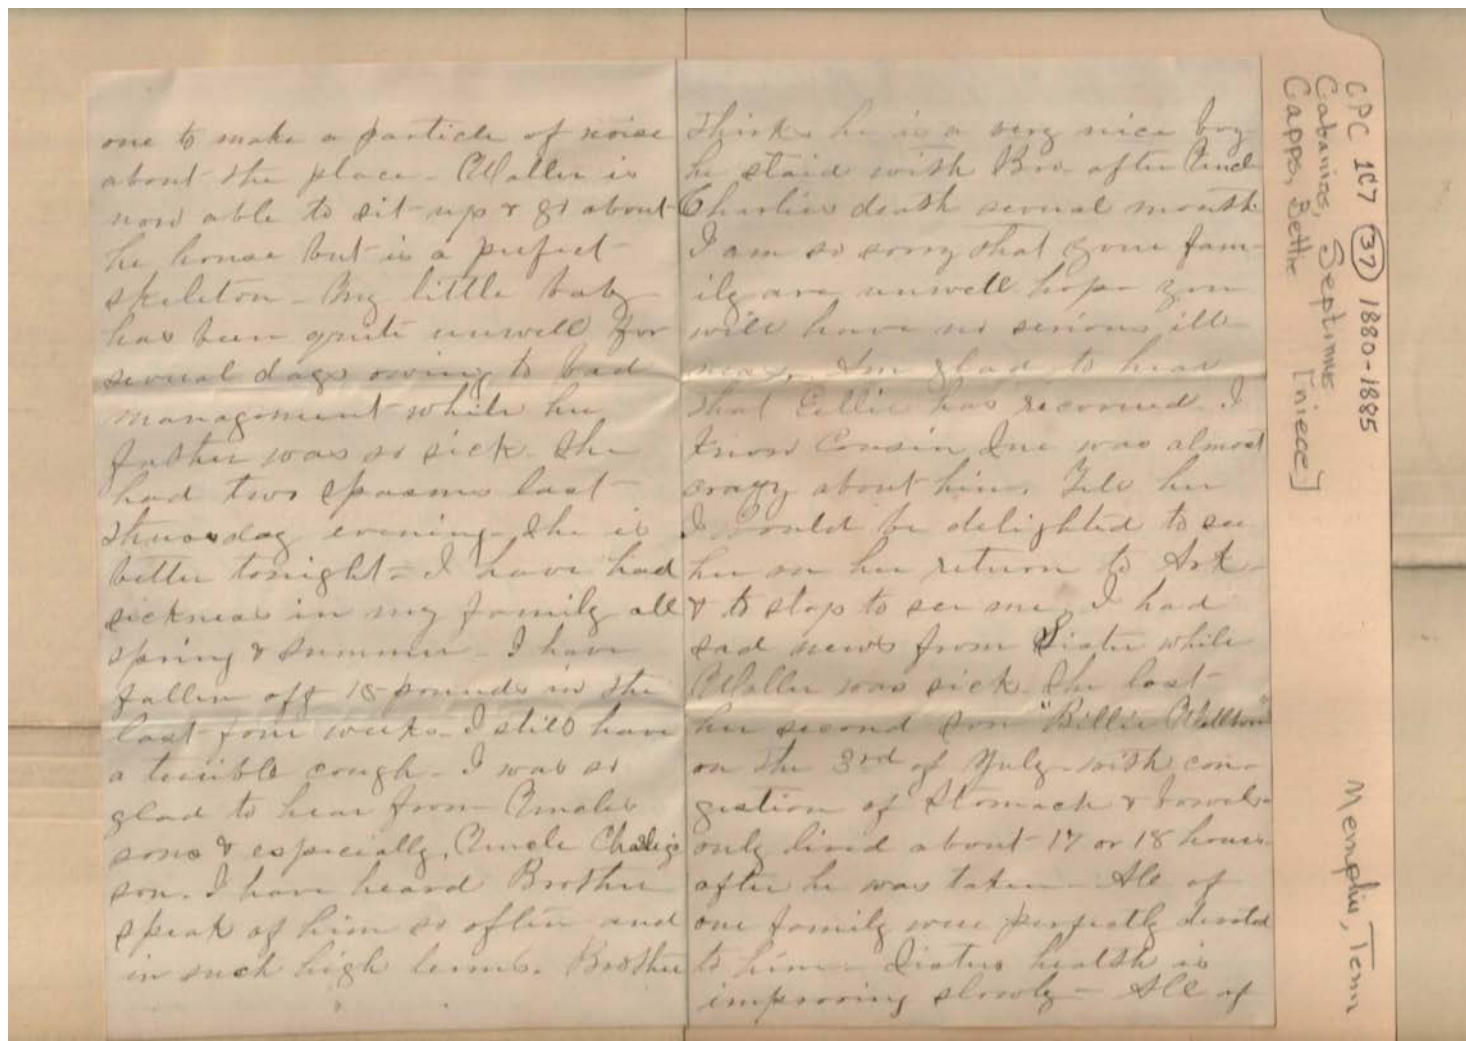 one to make a particle of noise
about the place - Waller is
now able to sit up & go about
he house but is a perfect
skeleton - My little baby
has been quite unwell for
several days owing to bad
management while her
father was so sick. She
had two spasms last
Thursday evening - She is
better tonight - I have had
sickness in my family all
spring & summer - I have
fallen off 18 pounds in the
last four weeks - I still have
a terrible cough - I was so
glad to hear from Uncles
sons & especially, Uncle Charlie's
son. I have heard Brother
speak of him so often and
in such high terms. Brother
thinks he is a very nice boy
he staid with Bro. after Uncle
Charlies death several months
I am so sorry that your fam-
ily are unwell hope you
will have no serious ill-
ness. Im glad to hear
that Ellie has recovered. I
know Cousin was almost
crazy about him. Tell her
I would be delighted to see
her on her return to Ark
& to stop to see me. I had
sad news from Sister while
Waller was sick. She lost
her second son "Billie
on the 3rd of July with con-
gestion of Stomach & bowels
only lived about 17 or 18 hours
after he was taken - All of
our family were perfectly devoted
to him - Sisters health is
improving slowly - All of
CPC 1C7 (37) 1880-1885
Cabaniss, Septimus
Capps, Bettie [niece]
Memphis, Tenn